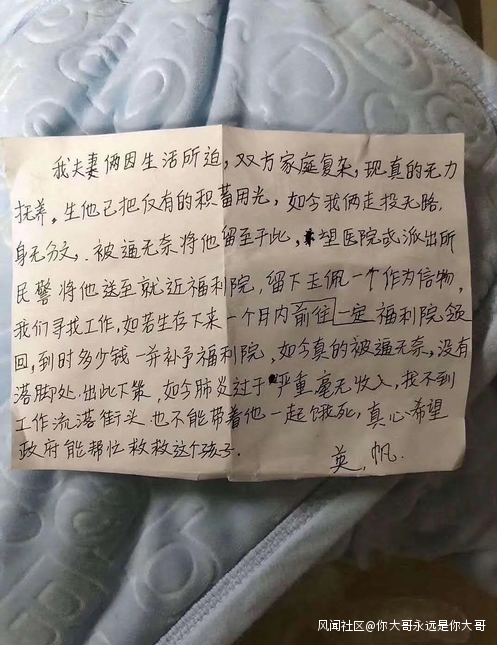 我夫妻俩因生活所迫，双方家庭复杂，现真的无力
抚养。生他已把仅有的积蓄用光，如今我俩走投无路
身无分文，被逼无奈将他留至于此，望医院或派出所
民警将他送至就近福利院，留下玉佩一个作为信物，
我们寻找工作，如若生存下来一个月内前往一定福利院领
回，到时多少钱一并补予福利院，如今真的被逼无奈，没有
落脚处，出此下策，如今肺炎过于严重，毫无收入，找不到
工作流落街头，也不能带着他一起饿死，真心希望
政府能帮忙救救这个孩子.
英，帆.
风闻社区@你大哥永远是你大哥